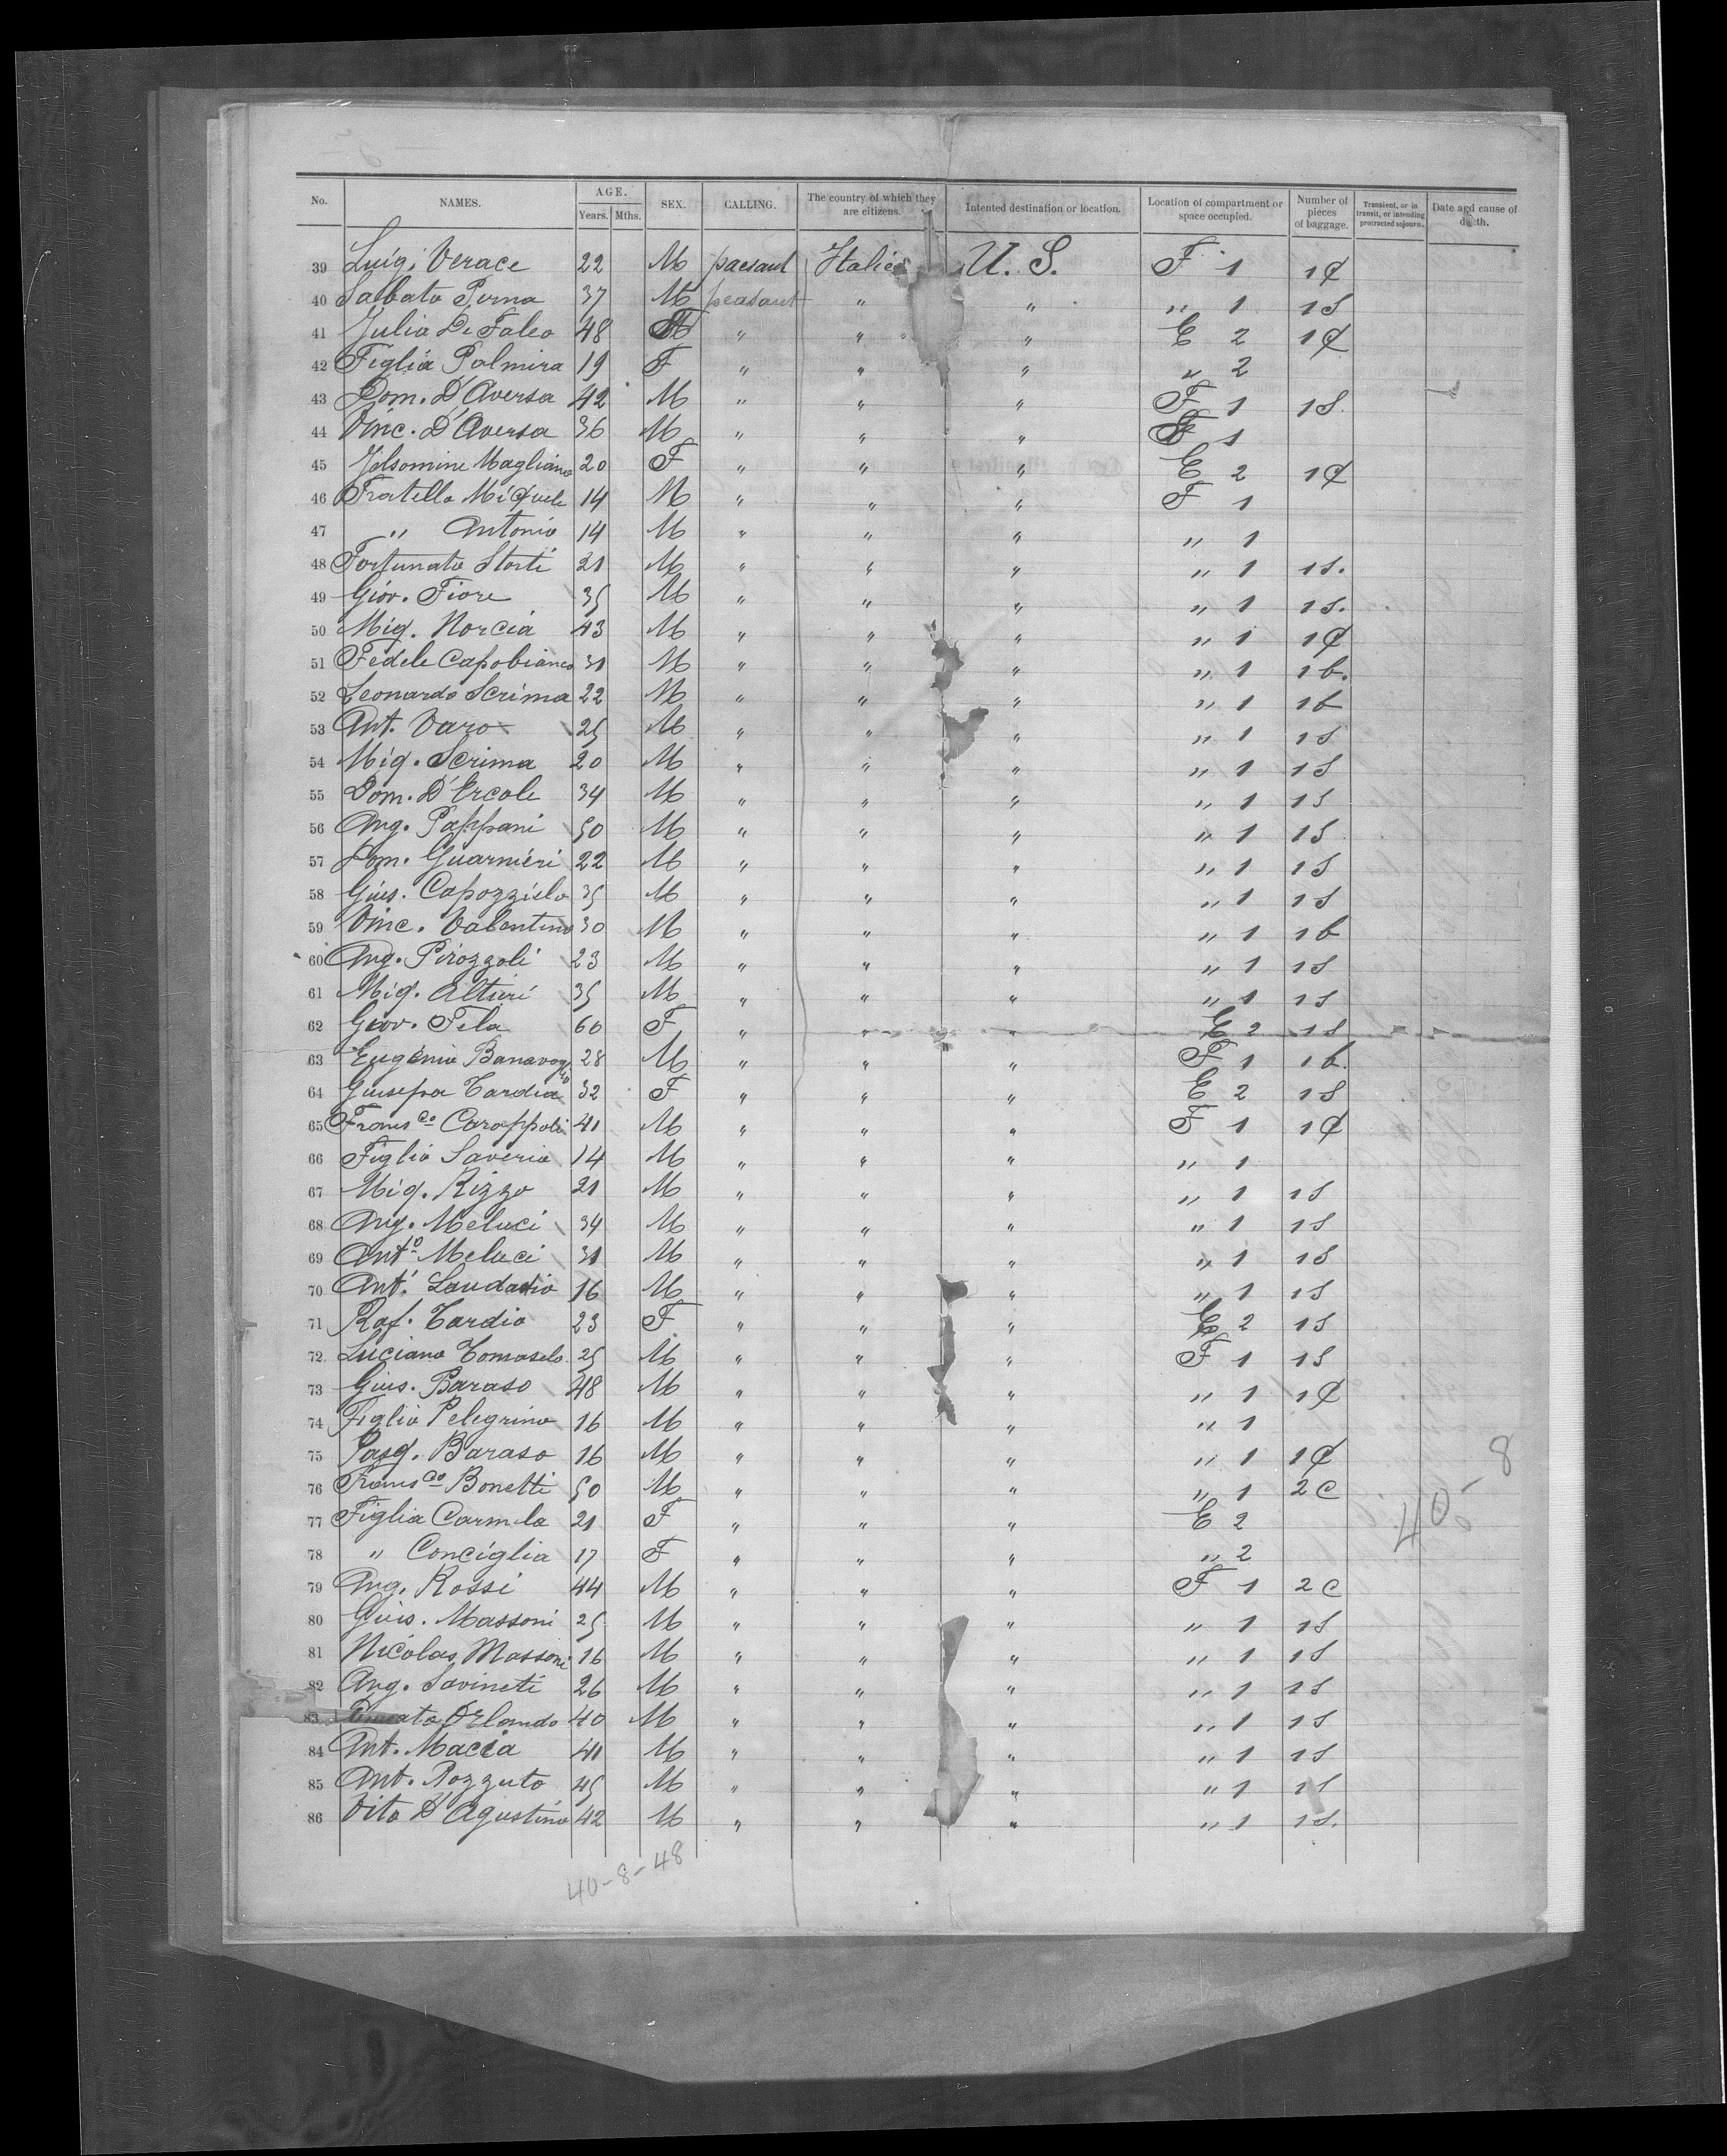 No. NAMES. AGE. Years. Mths. SEX. CALLING. The country of which they are citizens. Intented destination or location. Location of compartment or space occupied. Number of pieces of baggage. Transient, or in transit, or intending protracted sojourn. Date and cause of death.
39 Luigi Verace 22 M paesant Italien U. S. F 1 1C
40 Sabato Perna 37 M peasant " " " 1 1S
41 Julia De Falco 48 " " " E 2 1C
42 Figlia Palmira 19 F " " " " 2
43 Dom. D'Aversa 42 M " " " F 1 1S.
44 Vinc. D'Aversa 36 M " " " F 1
45 Jelsomine Magliano 20 F " " " E 2 1C
46 Fratello Miquele 14 M " " " F 1
47 " Antonio 14 M " " " " 1
48 Fortunato Storti 21 M " " " " 1 1S.
49 Giov. Fiore 35 M " " " " 1 1S.
50 Miq. Norcia 43 M " " " " 1 1C
51 Fedele Capobianco 31 M " " " " 1 1b.
52 Leonardo Scrima 22 M " " " " 1 1b
53 Ant. Varo 25 M " " " " 1 1S
54 Miq. Scrima 20 M " " " " 1 1S
55 Dom. D'Ercole 34 M " " " " 1 1S
56 Ang. Pappani 50 M " " " " 1 1S
57 Dom. Guarnieri 22 M " " " " 1 1S
58 Gius. Capozzielo 35 M " " " " 1 1S
59 Vinc. Valentino 30 M " " " " 1 1b
60 Ang. Pirozzoli 23 M " " " " 1 1S
61 Miq. Altieri 35 M " " " " 1 1S
62 Giov. Fela 60 F " " " E 2 1S
63 Eugenio Banavoglio 28 M " " " F 1 1b.
64 Giusepa Tardia 32 F " " " E 2 1S
65 Fransco Carappoli 41 M " " " F 1 1C
66 Figlio Saverio 14 M " " " " 1
67 Miq. Rizzo 21 M " " " " 1 1S
68 Ang. Meluci 34 M " " " " 1 1S
69 Anto Meluci 31 M " " " " 1 1S
70 Ant. Laudadio 16 M " " " " 1 1S
71 Raf. Tardio 23 F " " " E 2 1S
72 Luciano Tomaselo 25 M " " " F 1 1S
73 Gius. Baraso 48 M " " " " 1 1C
74 Figlio Pelegrino 16 M " " " " 1
75 Pasq. Baraso 16 M " " " " 1 1C
76 Fransco Bonetti 50 M " " " " 1 2C
77 Figlia Carmela 21 F " " " E 2
78 " Conciglia 17 F " " " " 2
79 Ang. Rossi 44 M " " " F 1 2C
80 Gius. Massoni 25 M " " " " 1 1S
81 Nicolas Massoni 16 M " " " " 1 1S
82 Ang. Savineti 26 M " " " " 1 1S
83 Orlando 40 M " " " " 1 1S
84 Ant. Maccia 41 M " " " " 1 1S
85 Ant. Pozzuto 45 M " " " " 1 1S
86 Vito D'Agustino 42 M " " " " 1 1S.
40-8
40-8-48